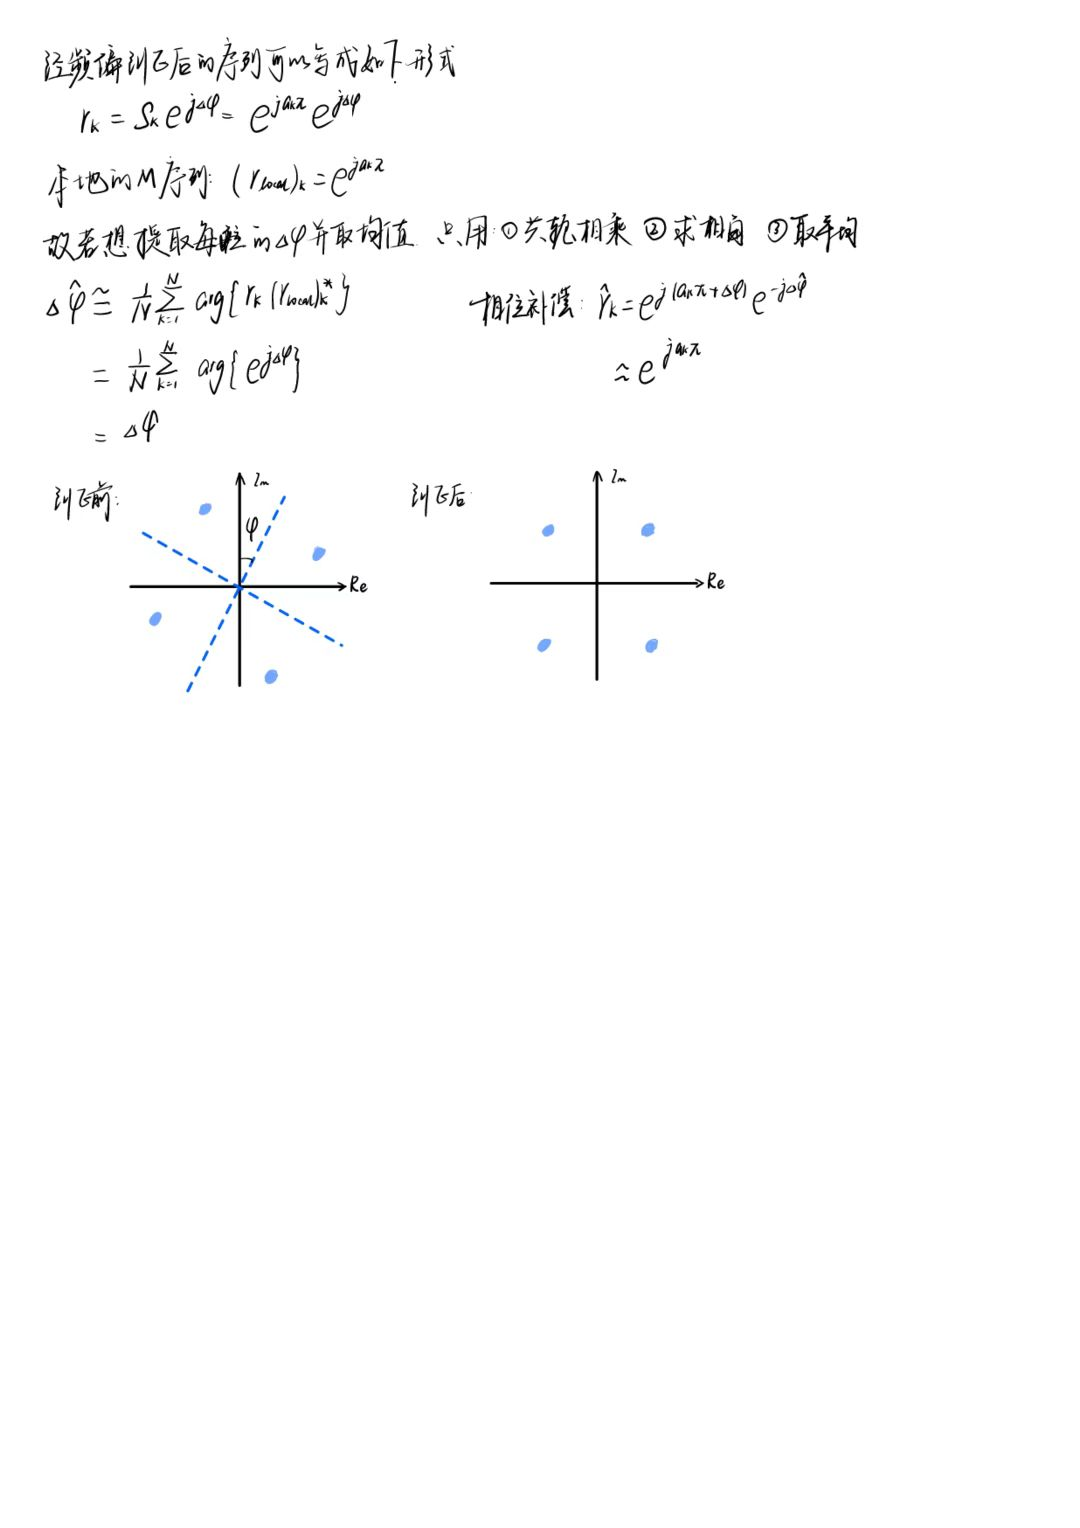 经频偏纠正后的序列可以写成如下形式
r_k = S_k e^{jΔφ} = e^{ja_kπ} e^{jΔφ}
本地的M序列: (r_{local})_k = e^{ja_kπ}
故若想提取每粒的Δφ并取均值 只用 ①共轭相乘 ②求相角 ③取平均
Δφ̂ ≅ \frac{1}{N} \sum_{k=1}^{N} arg{r_k (r_{local})_k^*}
= \frac{1}{N} \sum_{k=1}^{N} arg{e^{jΔφ}}
= Δφ
相位补偿: r̂_k = e^{j(a_kπ+Δφ)} e^{-jΔφ̂}
≈ e^{ja_kπ}
纠正前:
Im
φ
Re
纠正后
Im
Re